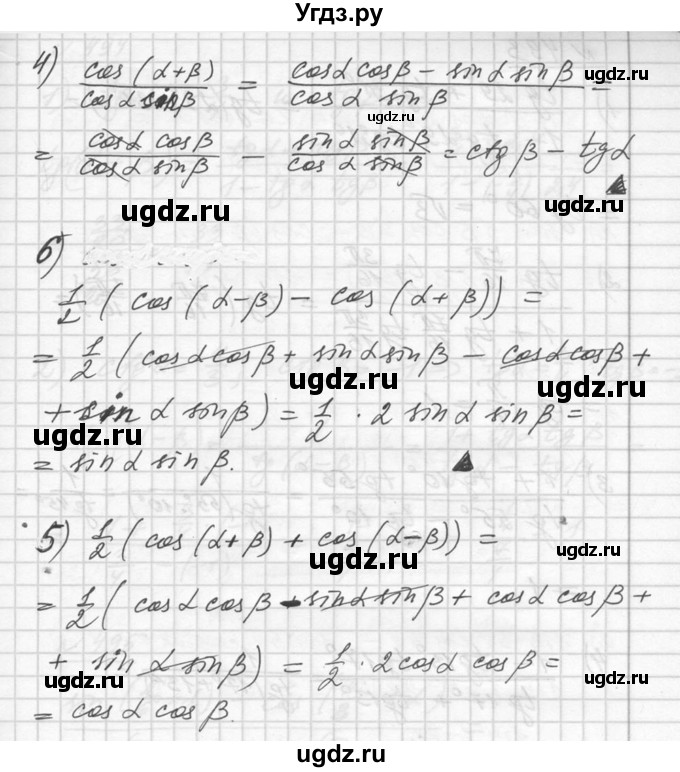 Угдз.ру
4) cos (α+β) / cos α sin β = cos α cos β − sin α sin β / cos α sin β =
ugdz.ru
ugdz.ru
= cos α cos β / cos α sin β − sin α sin β / cos α sin β = ctg β − tg α
ugdz.ru ugdz.ru
6)
1/2 (cos (α−β) − cos (α+β)) =
= 1/2 (cos α cos β + sin α sin β − cos α cos β +
ugdz.ru ugdz.ru
+ sin α sin β) = 1/2 · 2 sin α sin β =
ugdz.ru
= sin α sin β.
5) 1/2 (cos (α+β) + cos (α−β)) =
ugdz.ru ugdz.ru
= 1/2 (cos α cos β − sin α sin β + cos α cos β +
+ sin α sin β) = 1/2 · 2 cos α cos β =
ugdz.ru ugdz.ru
= cos α cos β.
ugdz.ru